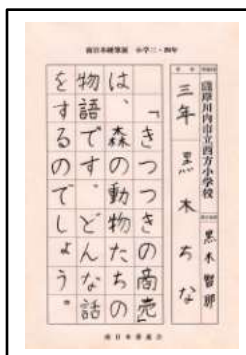 南日本硬筆展 小学三・四年
薩摩川内市立西方小学校
三年 黒木ちな
黒木 智那
「きつつきの商売」
は、森の動物たちの
物語です。どんな話
をするのでしょう。
南日本書道会